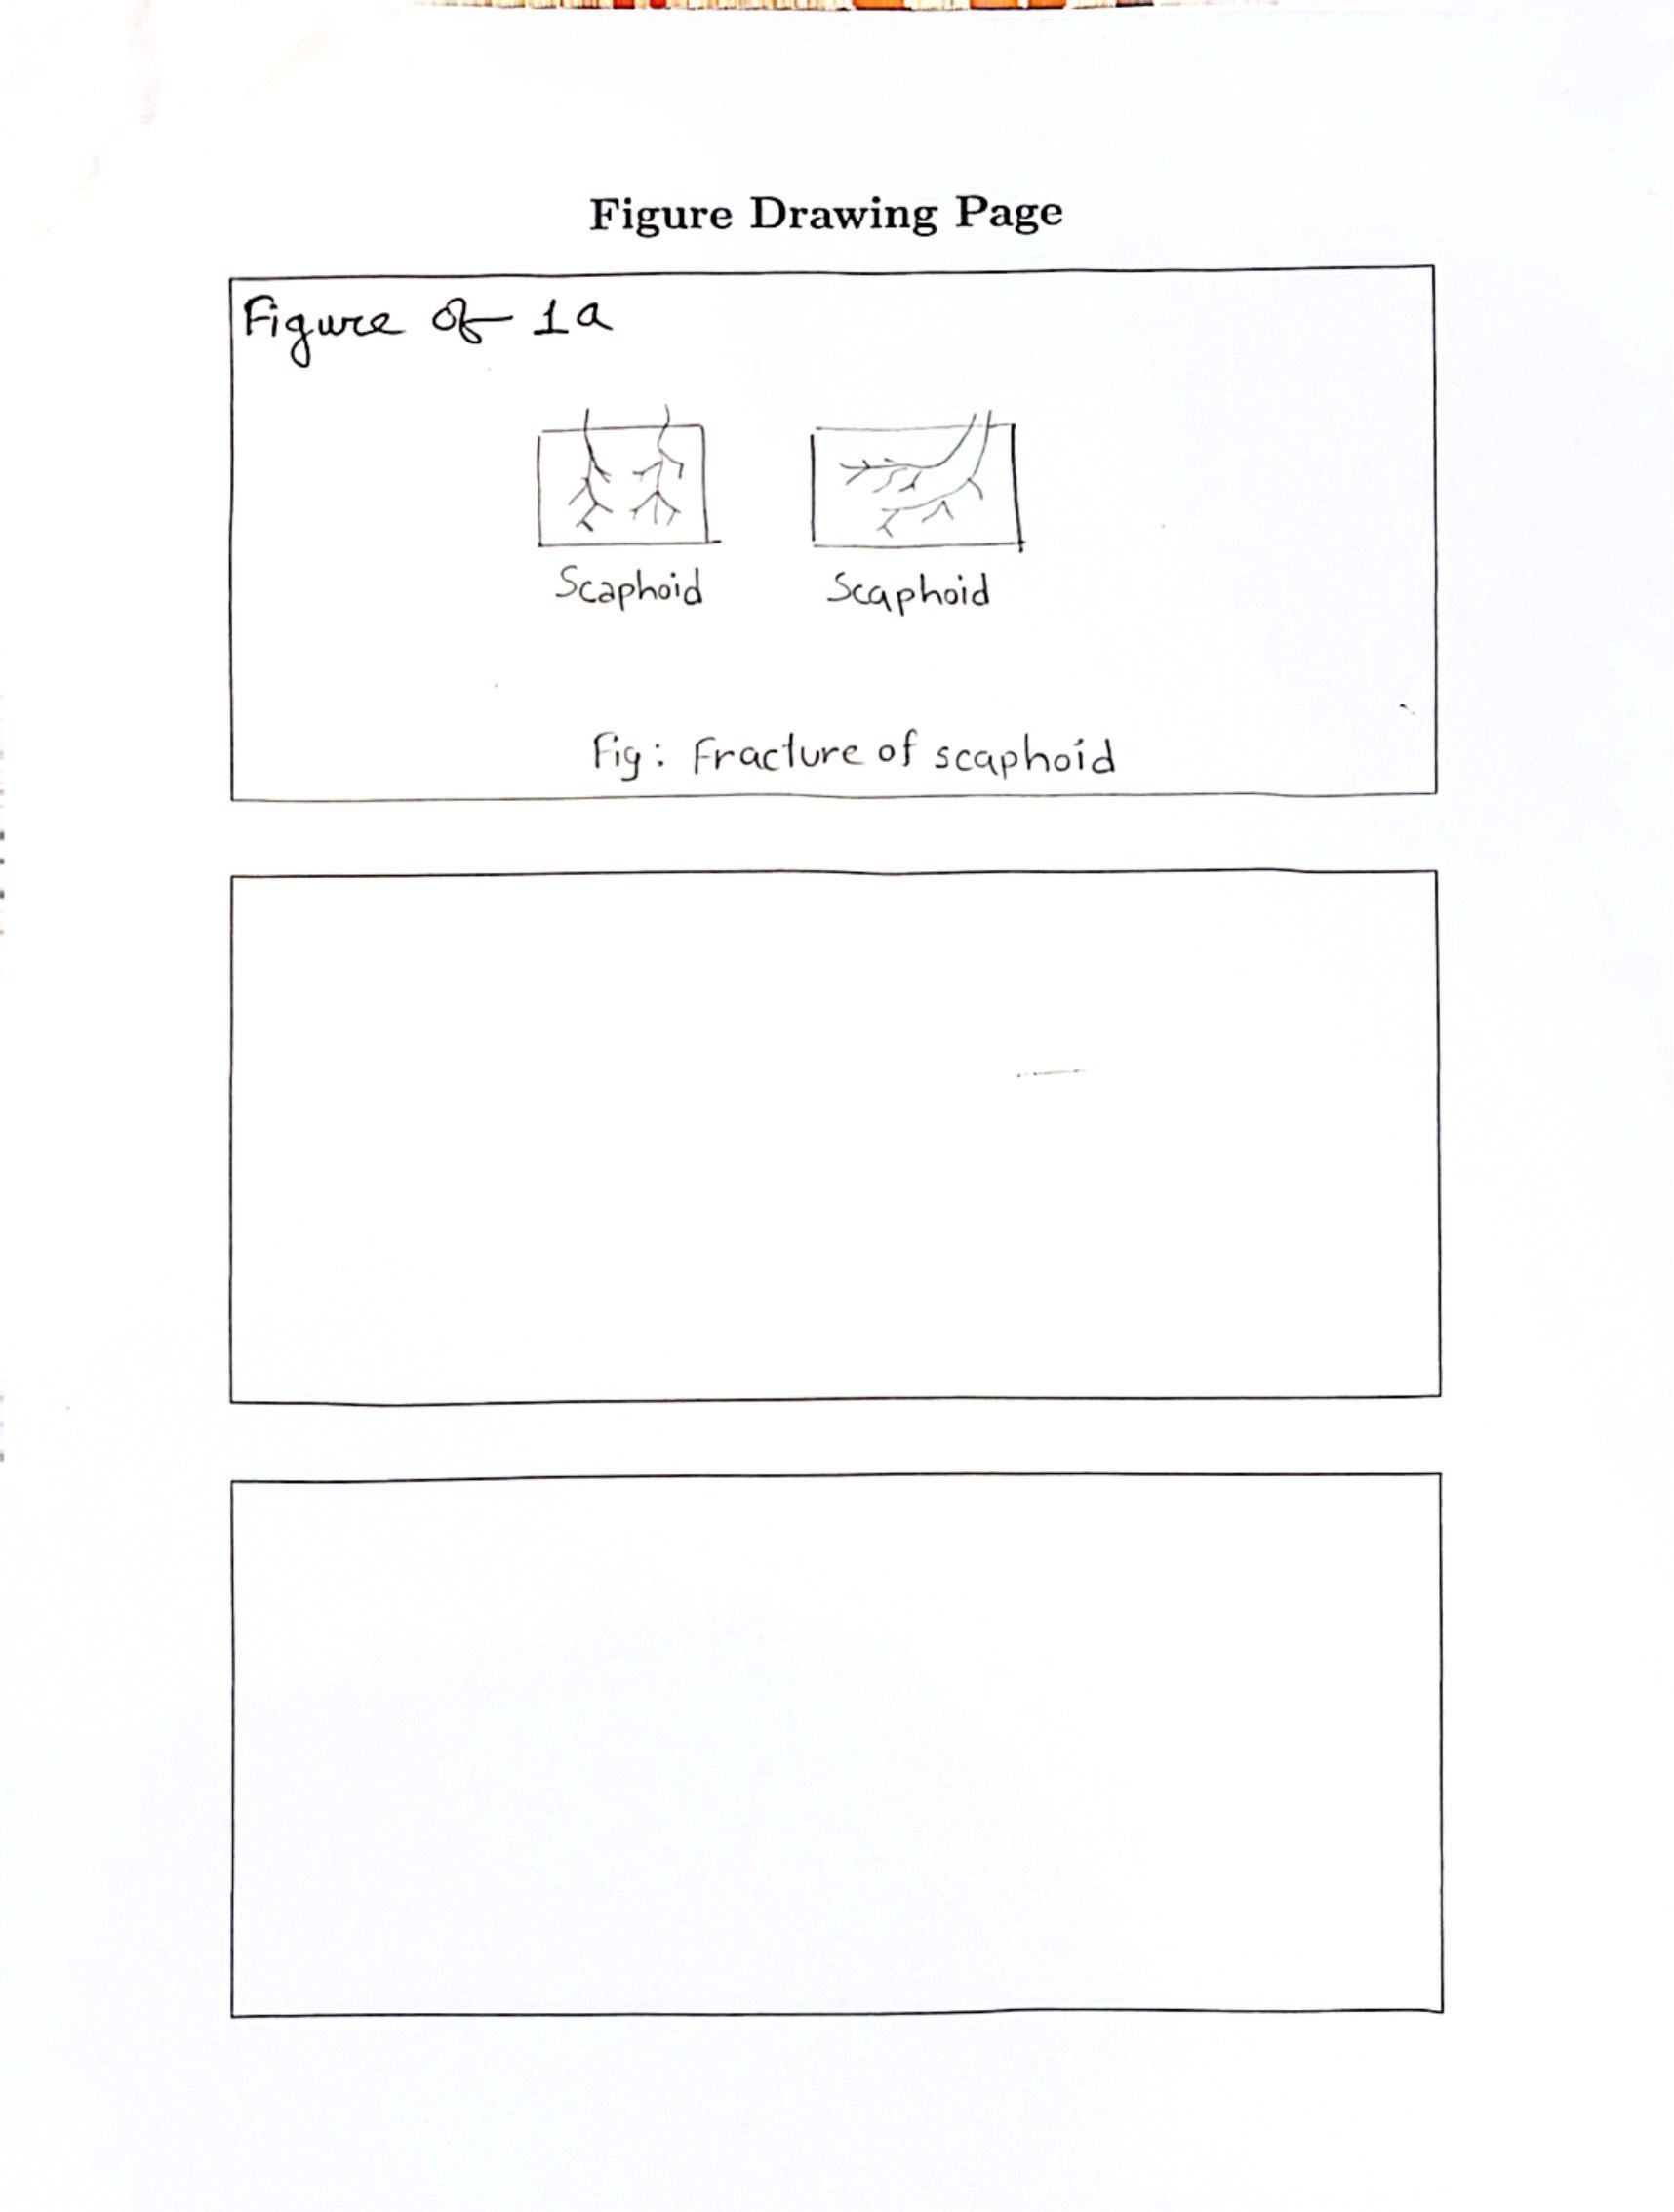 Figure Drawing Page
Figure of 1a
Scaphoid Scaphoid
Fig: Fracture of scaphoid